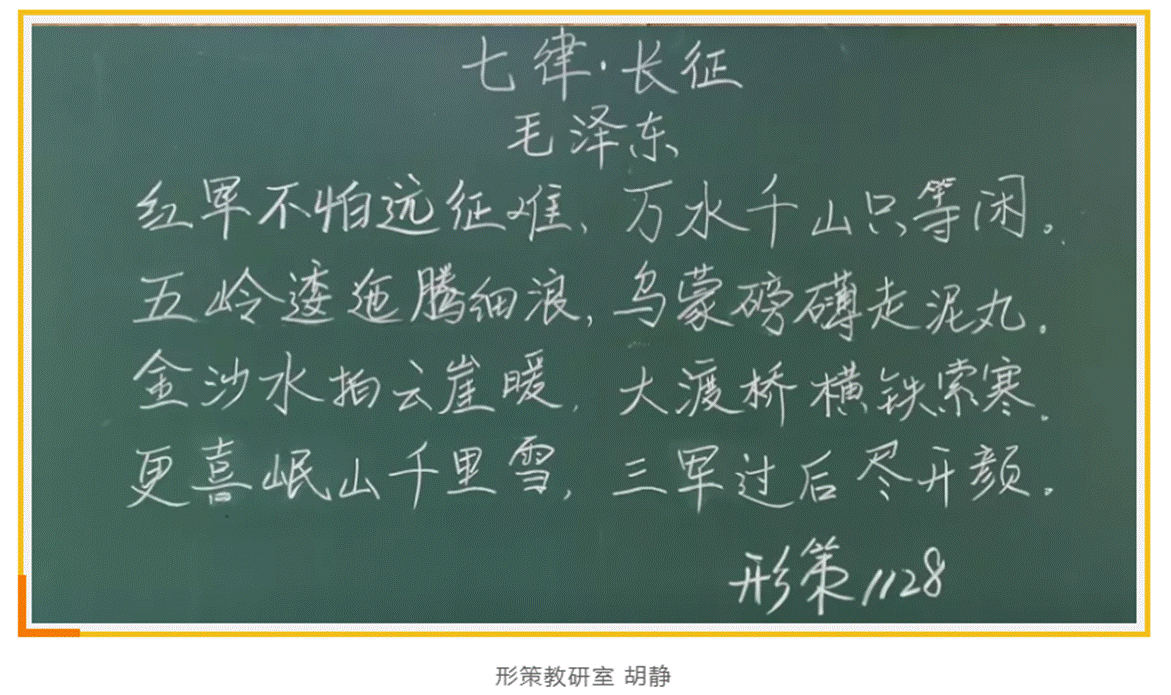 七律·长征
毛泽东
红军不怕远征难,万水千山只等闲。
五岭逶迤腾细浪,乌蒙磅礴走泥丸。
金沙水拍云崖暖,大渡桥横铁索寒。
更喜岷山千里雪,三军过后尽开颜。
形策1128
形策教研室 胡静